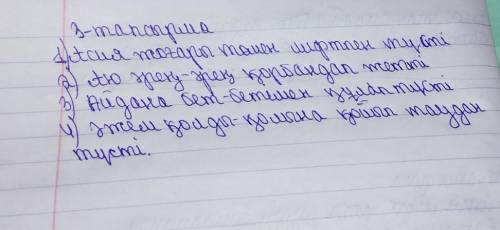 3-тапсырма
1) Асия жоғары төмен лифтпен түсті
2) Аю әрең-әрең қорбаңдап жетті
3) Айдана бет-бетімен құлап түсті
4) Әтем қолды-қолына қойып таудан
түсті.